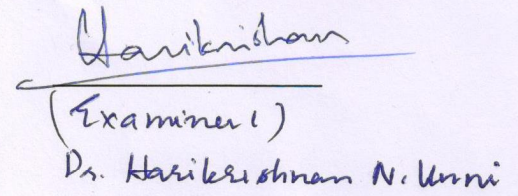 Harikrishnan
(Examiner 1)
Dr. Harikrishnan N. Unni